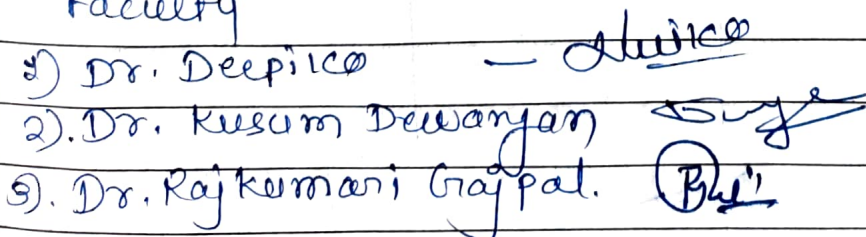 Faculty
1) Dr. Deepika -
2). Dr. Kusum Dewanjan
3). Dr. Rajkumari Gajpal.